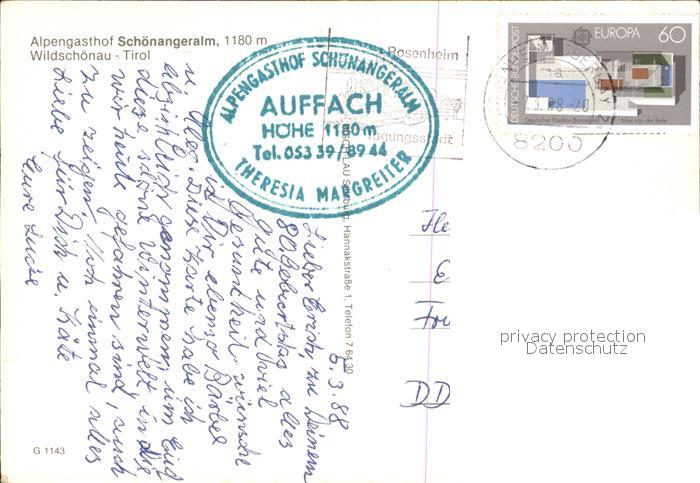 Alpengasthof Schönangeralm, 1180 m
Wildschönau - Tirol
ALPENGASTHOF SCHÖNANGERALM
AUFFACH
HÖHE 1180 m
Tel. 053 39 / 89 44
THERESIA MARGREITER
Rosenheim
Tagungsstadt
DEUTSCHE BUNDESPOST
EUROPA 60
Deutscher Pavillon Barcelona
Mies van der Rohe
8200
Hannakstraße 1, Telefon 76430
5.3.88
Lieber Erich, zu Deinem
80. Geburtstag alles
Gute und viel
Gesundheit wünscht
Dir ebenso Bärbel
u. Diese Karte habe ich
genommen, um Euch
diese schöne Winterwelt, in die
wir heute gefahren sind, auch
zu zeigen. Noch einmal alles
Liebe für Dich u. Käte
Eure Lucie
He
E
DD
G 1143
privacy protection
Datenschutz